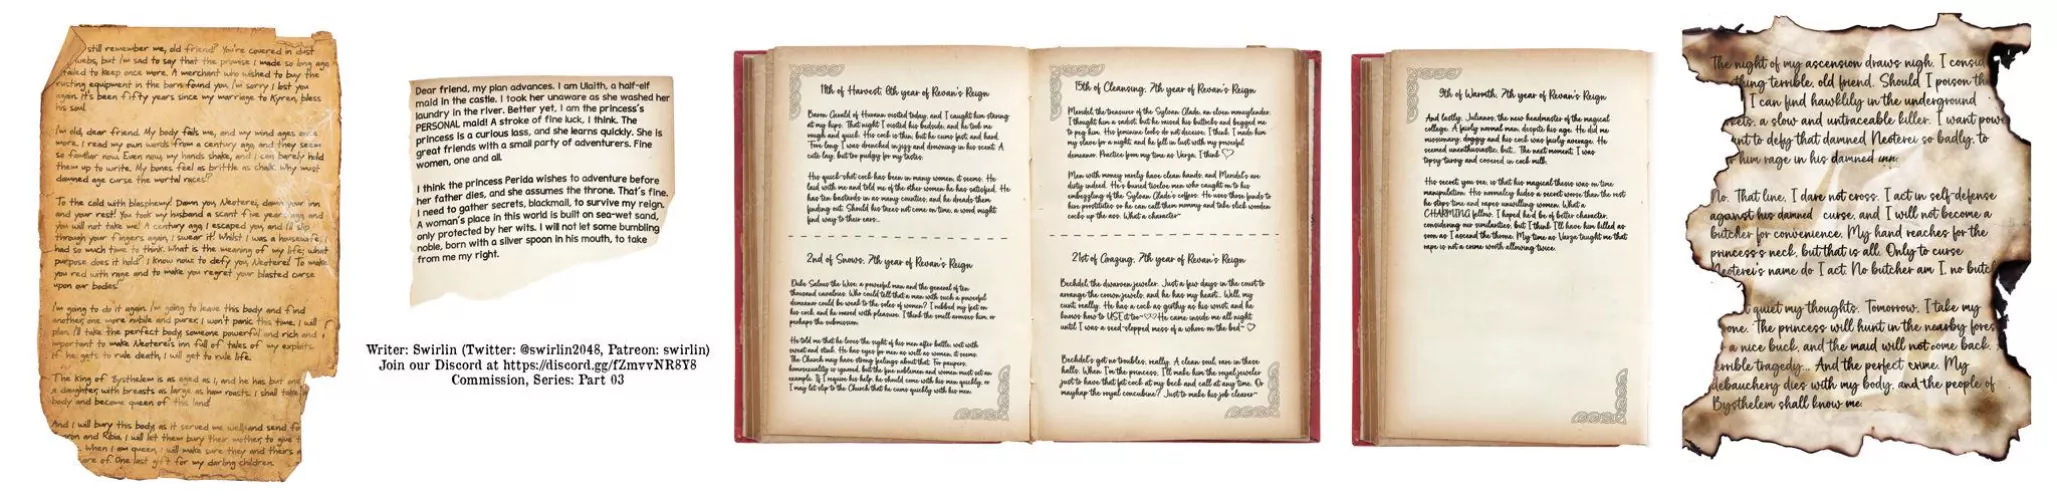 still remember me, old friend? You're covered in dust
webs, but I'm sad to say that the promise I made so long ago
failed to keep once more. A merchant who wished to buy the
rusting equipment in the barn found you. I'm sorry I lost you
again. It's been fifty years since my marriage to Kyren, bless
his soul.
I'm old, dear friend. My body fails me, and my mind ages once
more. I read my own words from a century ago, and they seem
so familiar now. Even now, my hands shake, and I can barely hold
them up to write. My bones feel as brittle as chalk. Why must
damned age curse the mortal races?
To the cold with blasphemy! Damn you, Neoterei, damn your inn
and your rest! You took my husband a scant five years ago and
you will not take me! A century ago, I escaped you, and I'll slip
through your fingers again, I swear it! Whilst I was a housewife, I
had so much time to think. What is the meaning of my life; what
purpose does it hold? I know now: to defy you, Neoterei. To make
you red with rage and to make you regret your blasted curse
upon our bodies.
I'm going to do it again. I'm going to leave this body and find
another, one more nubile and purer. I won't panic this time. I will
plan. I'll take the perfect body, someone powerful and rich and
important to make Neoterei's inn full of tales of my exploits.
If he gets to rule death, I will get to rule life.
The king of Bysthelem is as aged as I, and he has but one
a daughter, with breasts as large as ham roasts. I shall take
body and become queen of this land.
And I will bury this body, as it served me well, and send for
and Ribia. I will let them bury their mother, to give
When I am queen, I will make sure they and theirs a
are of. One last gift for my darling children.
Dear friend, my plan advances. I am Ulaith, a half-elf
maid in the castle. I took her unaware as she washed her
laundry in the river. Better yet, I am the princess's
PERSONAL maid! A stroke of fine luck, I think. The
princess is a curious lass, and she learns quickly. She is
great friends with a small party of adventurers. Fine
women, one and all.
I think the princess Perida wishes to adventure before
her father dies, and she assumes the throne. That's fine.
I need to gather secrets, blackmail, to survive my reign.
A woman's place in this world is built on sea-wet sand,
only protected by her wits. I will not let some bumbling
noble, born with a silver spoon in his mouth, to take
from me my right.
Writer: Swirlin (Twitter: @swirlin2048, Patreon: swirlin)
Join our Discord at https://discord.gg/fZmvvNR8Y8
Commission, Series: Part 03
11th of Harvest, 6th year of Revan's Reign
Baron Gerald of Havenn visited today, and I caught him staring
at my hips. That night I visited his bedside, and he took me
rough and quick. His cock is thin, but he cums fast, and hard.
'Fore long, I was drenched in jizz and drowning in his scent. A
cute lay, but too pudgy for my tastes.
His quick-shot cock has been in many women, it seems. He
laid with me and told me of the other women he has satisfied. He
has ten bastards in as many counties, and he dreads them
finding out. Should his taxes not come on time, a word might
find way to their ears...
2nd of Snows, 7th year of Revan's Reign
Duke Salnus the Wise, a powerful man and the general of ten
thousand cavaliers. Who could tell that a man with such a powerful
demeanor could be weak to the soles of women? I rubbed my feet on
his cock, and he moaned with pleasure. I think the smell arouses him, or
perhaps the submission.
He told me that he loves the sight of his men after battle, wet with
sweat and stink. He has eyes for men as well as women, it seems.
The Church may have strong feelings about that. For paupers,
homosexuality is ignored, but the fine noblemen and women must set an
example. If I require his help, he should come with his men quickly, or
I may let slip to the Church that he cums quickly with his men.
15th of Cleansing, 7th year of Revan's Reign
Mendel, the treasurer of the Sylvan Glade, an elven moneylender.
I thought him a sadist, but he moved his buttocks and begged me
to peg him. His feminine looks do not deceive, I think. I made him
my slave for a night, and he fell in lust with my powerful
demeanor. Practice from my time as Varze, I think ♡
Men with money rarely have clean hands, and Mendel's are
dirty indeed. He's buried twelve men who caught on to his
embezzling of the Sylvan Glade's coffers. He uses those funds to
hire prostitutes so he can call them mommy and take slick wooden
cocks up the ass. What a character~
21st of Grazing, 7th year of Revan's Reign
Bechdel, the dwarven jeweler. Just a few days in the court to
arrange the crown jewels, and he has my heart... Well, my
cunt, really. He has a cock as girthy as his wrist, and he
knows how to USE it too~♡♡ He came inside me all night
until I was a seed-slopped mess of a whore on the bed~ ♡
Bechdel's got no troubles, really. A clean soul, rare in these
halls. When I'm the princess, I'll make him the royal jeweler
just to have that fat cock at my beck and call at any time. Or
mayhap the royal concubine? Just to make his job clearer~
9th of Warmth, 7th year of Revan's Reign
And lastly, Julianos, the new headmaster of the magical
college. A fairly normal man, despite his age. He did me
missionary, doggy and his cock was fairly average. He
seemed unenthusiastic, but... The next moment, I was
topsy turvy and covered in cock milk.
His secret, you see, is that his magical thesis was on time
manipulation. His normalcy hides a secret worse than the rest:
he stops time and rapes unwilling women. What a
CHARMING fellow. I hoped he'd be of better character,
considering our similarities, but I think I'll have him killed as
soon as I ascend the throne. My time as Varze taught me that
rape is not a crime worth allowing twice.
The night of my ascension draws nigh. I consid
thing terrible, old friend. Should I poison the
I can find hawklily in the underground
a slow and untraceable killer. I want power
to defy that damned Neoterei so badly, to
him rage in his damned inn.
No. That line, I dare not cross. I act in self-defense
against his damned curse, and I will not become a
butcher for convenience. My hand reaches for the
princess's neck, but that is all. Only to curse
Neoterei's name, do I act. No butcher am I, no butch
I quiet my thoughts. Tomorrow, I take my
The princess will hunt in the nearby fores
a nice buck, and the maid will not come back.
terrible tragedy... And the perfect crime. My
debauchery dies with my body, and the people of
Bysthelem shall know me.